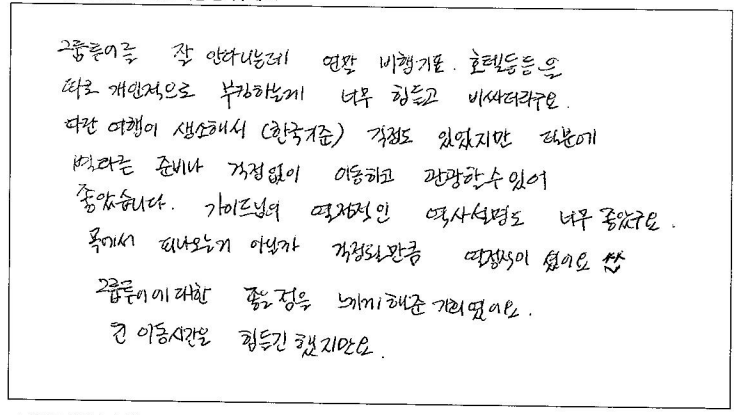 그룹투어를 잘 안다니는데 연말 비행기표. 호텔등등을
따로 개인적으로 부킹하는게 너무 힘들고 비싸더라구요.
다란 여행이 생소해서 (한국기준) 걱정도 있었지만 덕분에
별다른 준비나 걱정없이 이동하고 관광할수 있어
좋았습니다. 가이드님의 열정적인 역사설명도 너무 좋았구요.
목에서 피나오는거 아닌가 걱정될만큼 열정적이셨어요 ^^
그룹투어에 대한 좋은점을 느끼게 해준 기회였어요.
긴 이동시간은 힘들긴 했지만요.